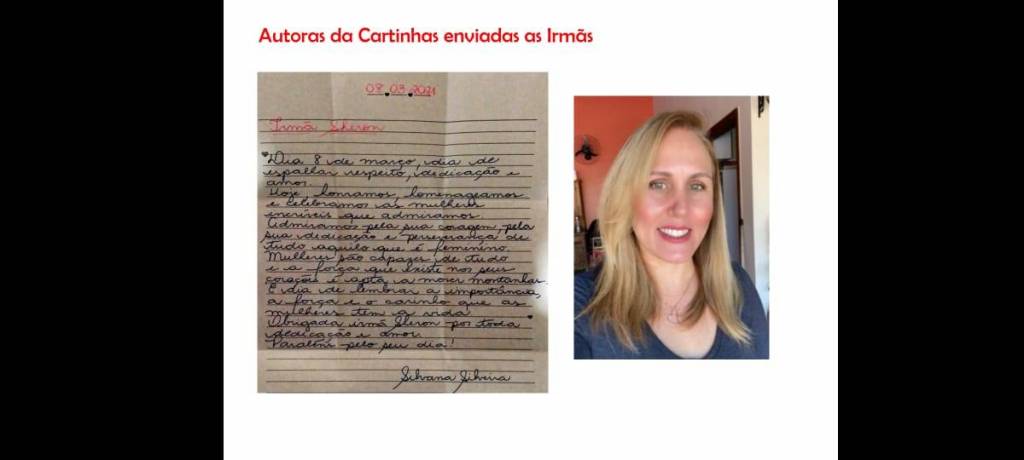 Autoras da Cartinhas enviadas as Irmãs
08.03.2021
Irmã Sheron
Dia 8 de março, dia de
espalhar respeito, dedicação e
amor.
Hoje, honramos, homenageamos
e celebramos as mulheres
incríveis que admiramos.
Admiramos pela sua coragem, pela
sua dedicação e perseverança de
tudo aquilo que é feminino.
Mulheres são capazes de tudo
e a força que existe nos seus
corações é apta a mover montanhas.
E dia de lembrar a importância,
a força e o carinho que as
mulheres tem a vida
Obrigada irmã Sheron por toda
dedicação e amor.
Parabéns pelo seu dia!
Silvana Silveira